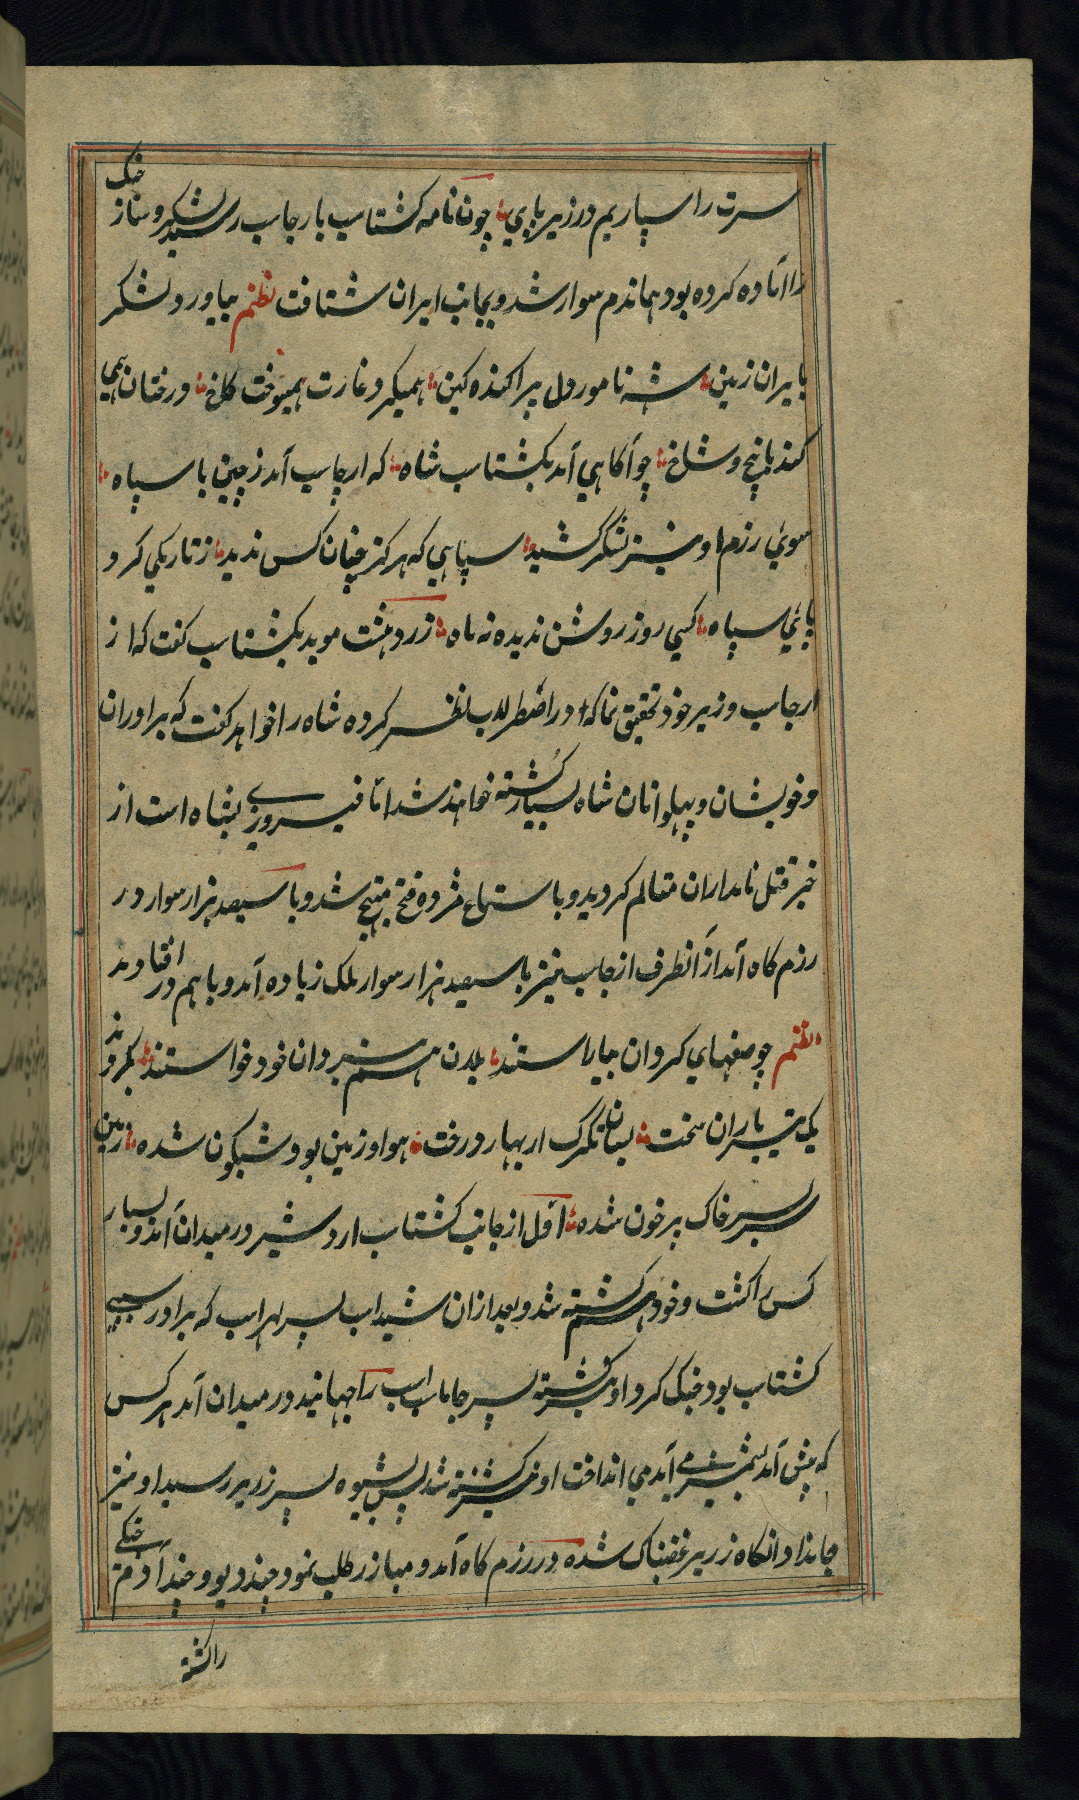 سرت را سپاریم در زیر پای چون نامه کشتاسپ بارجاسب رسید لشکر و ساز جنک
را آماده کرده بود هماندم سوار شد و بجانب ایران شتافت نظم بیاورد لشکر
بایران زمین شه نامور دل پراکنده کین همیکرد غارت همیسوخت کاخ درختان همی
کند با بیخ و شاخ چو آکاهی آمد بکشتاسب شاه که ارجاسپ آمد ز چین با سپاه
سوی رزم او نیز لشکر کشید سپاهی که هرکز چنان کس ندید ز تاریکی کرد
پای سپاه کسی روز روشن ندیده نه ماه زردهشت موبد بکشتاسب کفت که از
جاماسب وزیر خود تحقیق نما که در اضطرلاب نظر کرده شاه را خواهد کفت که برادران
و خویشان و پهلوانان شاه بسیار کشته خواهند شد اما فیروزی بشاه است از
خبر قتل نامداران متالم کردید و باستماع مژدهٔ فتح مبتهج شد و با سیصد هزار سوار در
رزم کاه آمد از آنطرف ارجاسب نیز با سیصد هزار سوار بلک زیاده آمد و باهم در افتادند
نظم چو صفهای کردان بیاراستند یلان هم نبردان خود خواستند بکردند
یک تیرباران سخت بسان تکرک ابر بهار درخت هوا و زمین بود شبکون شده زمین
سربسر خاک پر خون شده اول از جانب کشتاسب اردشیر در میدان آمد و بسیار
کس را کشت و خود هم کشته شد و بعد ازان شیداسب پسر لهراسب که برادر سببی
کشتاسب بود جنک کرد او نیز کشته پسر جاماسب اسب را جهانید در میدان آمد هر کس
که پیش آمد بشمشیر می آید می انداخت او نیز کشته شد پس شیوه پسر زریر رسید او نیز
جانداد انکاه زریر غضبناک شده در رزم کاه آمد و مبارز طلب نمود چند دیو و چند آدم جنکی
را کشته